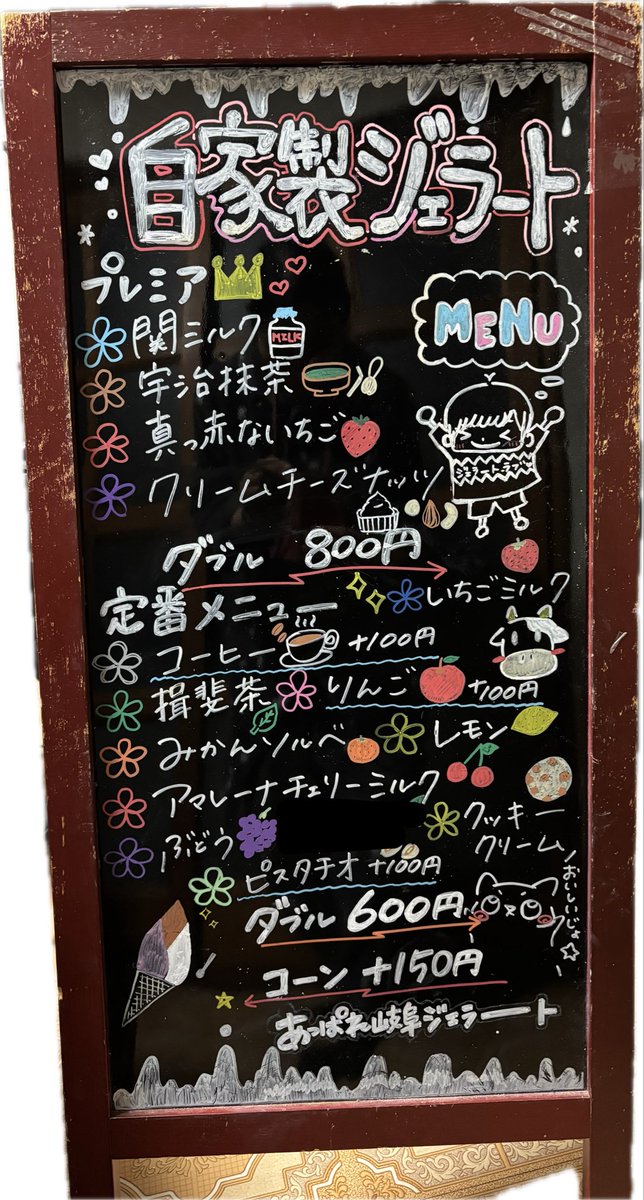 自家製ジェラート
プレミア
MENU
関ミルク
MILK
宇治抹茶
真っ赤ないちご
クリームチーズナッツ
ダブル 800円
定番メニュー
いちごミルク
コーヒー +100円
揖斐茶
りんご +100円
みかんソルベ
レモン
アマレーナチェリーミルク
ぶどう
クッキー
クリーム
ピスタチオ +100円
おいしいジャ
ダブル 600円
コーン +150円
あっぱれ岐阜ジェラート